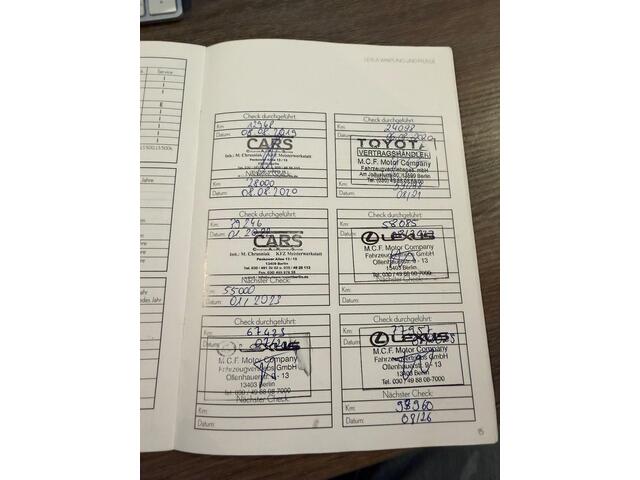 LEXUS WARTUNG UND PFLEGE
Service
Check durchgeführt:
Km: 12948
Datum: 08.08.2019
CARS
Inh.: M. Chrusniak KFZ Meisterwerkstatt
Pankower Allee 13 / 15
13409 Berlin
Nächster Check:
28000
08.08.2020
Check durchgeführt:
Km: 24098
Datum:
TOYOTA
VERTRAGSHÄNDLER
M.C.F. Motor Company
Fahrzeugvertriebsges. mbH
Am Juliusturm 50, 13599 Berlin
Km:
Datum: 08/21
Check durchgeführt:
Km: 39246
Datum: 01.2022
CARS
Inh.: M. Chrusniak KFZ Meisterwerkstatt
Pankower Allee 13 / 15
13409 Berlin
Nächster Check:
Km: 55000
Datum: 01/2023
Check durchgeführt:
Km: 58085
Datum:
LEXUS
M.C.F. Motor Company
Fahrzeugvertriebs GmbH
Ollenhauerstr. 9 - 13
13403 Berlin
Tel. 030 / 49 88 08-7000
Nächster Check:
Km:
Datum:
Check durchgeführt:
Km: 67423
Datum:
LEXUS
M.C.F. Motor Company
Fahrzeugvertriebs GmbH
Ollenhauerstr. 9 - 13
13403 Berlin
Tel. 030 / 49 88 08-7000
Nächster Check:
Km:
Datum:
Check durchgeführt:
Km: 77957
Datum:
LEXUS
M.C.F. Motor Company
Fahrzeugvertriebs GmbH
Ollenhauerstr. 9 - 13
13403 Berlin
Tel. 030 / 49 88 08-7000
Nächster Check:
Km: 98960
Datum: 08/26
15